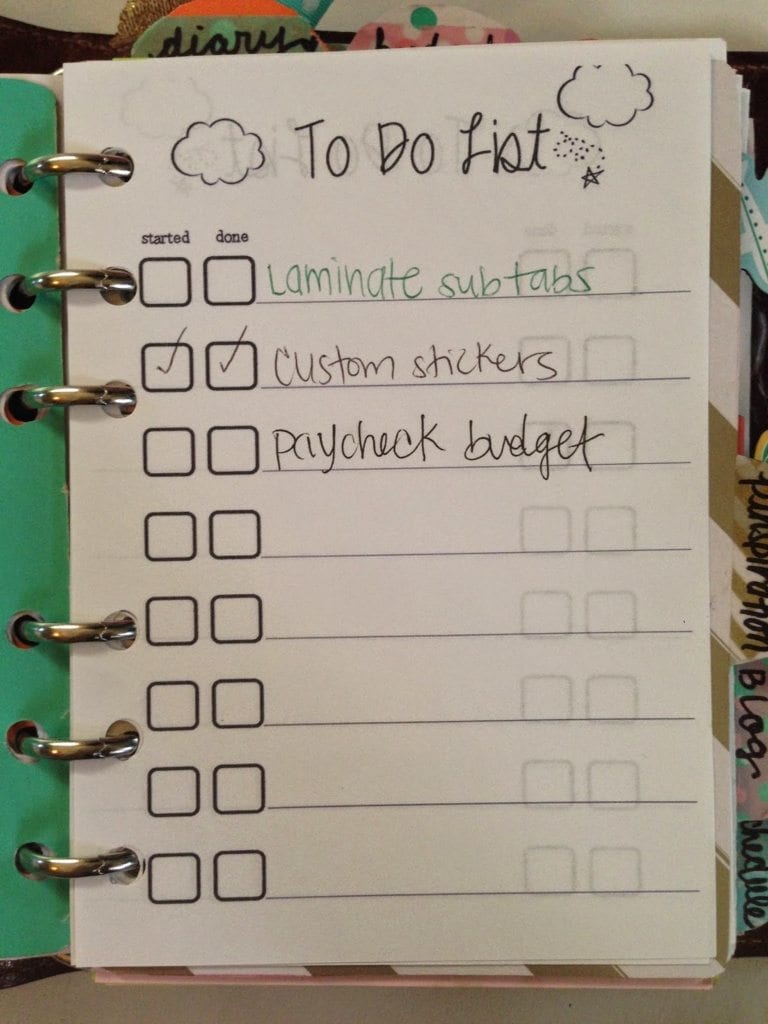 diary
To Do List
started done
Laminate subtabs
custom stickers
paycheck budget
Blog